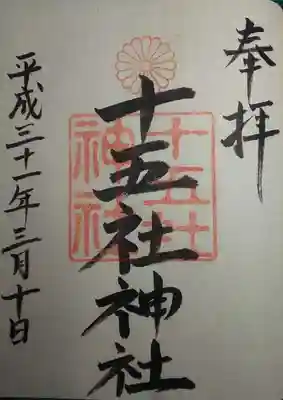 奉拝
十五社神社
十五社神社
平成三十一年三月十日